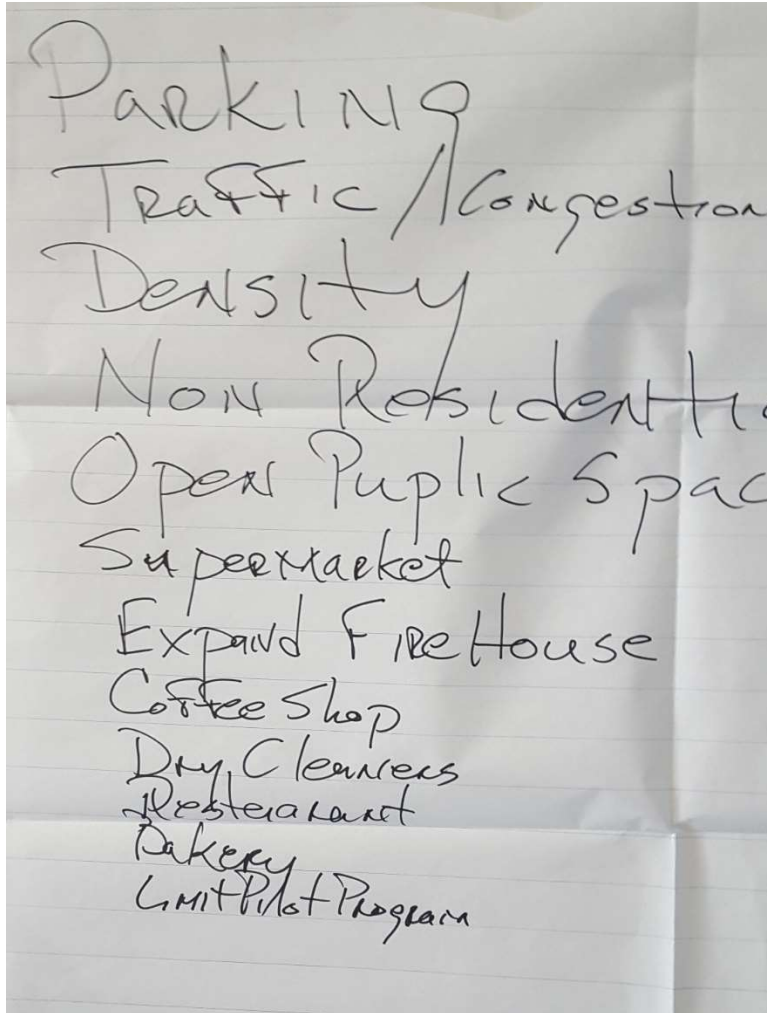 Parking
Traffic / Congestion
Density
Non Residenti
Open Puplic Spac
Supermarket
Expand FireHouse
Coffee Shop
Dry Cleaners
Restearant
Bakery
Limit Pilot Program